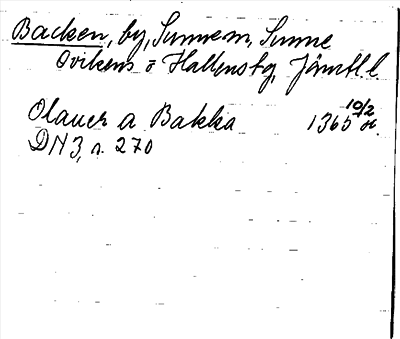 Backen, by, Sunne sn, Sunne
Ovikens o Hallens tg, Jämtl. l
Olauer a Bakka 1365 10/2 or.
DN 3, n. 270